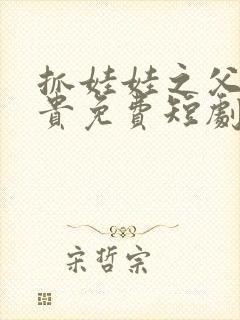 抓娃娃之父
貴免費短劇
宋哲宗